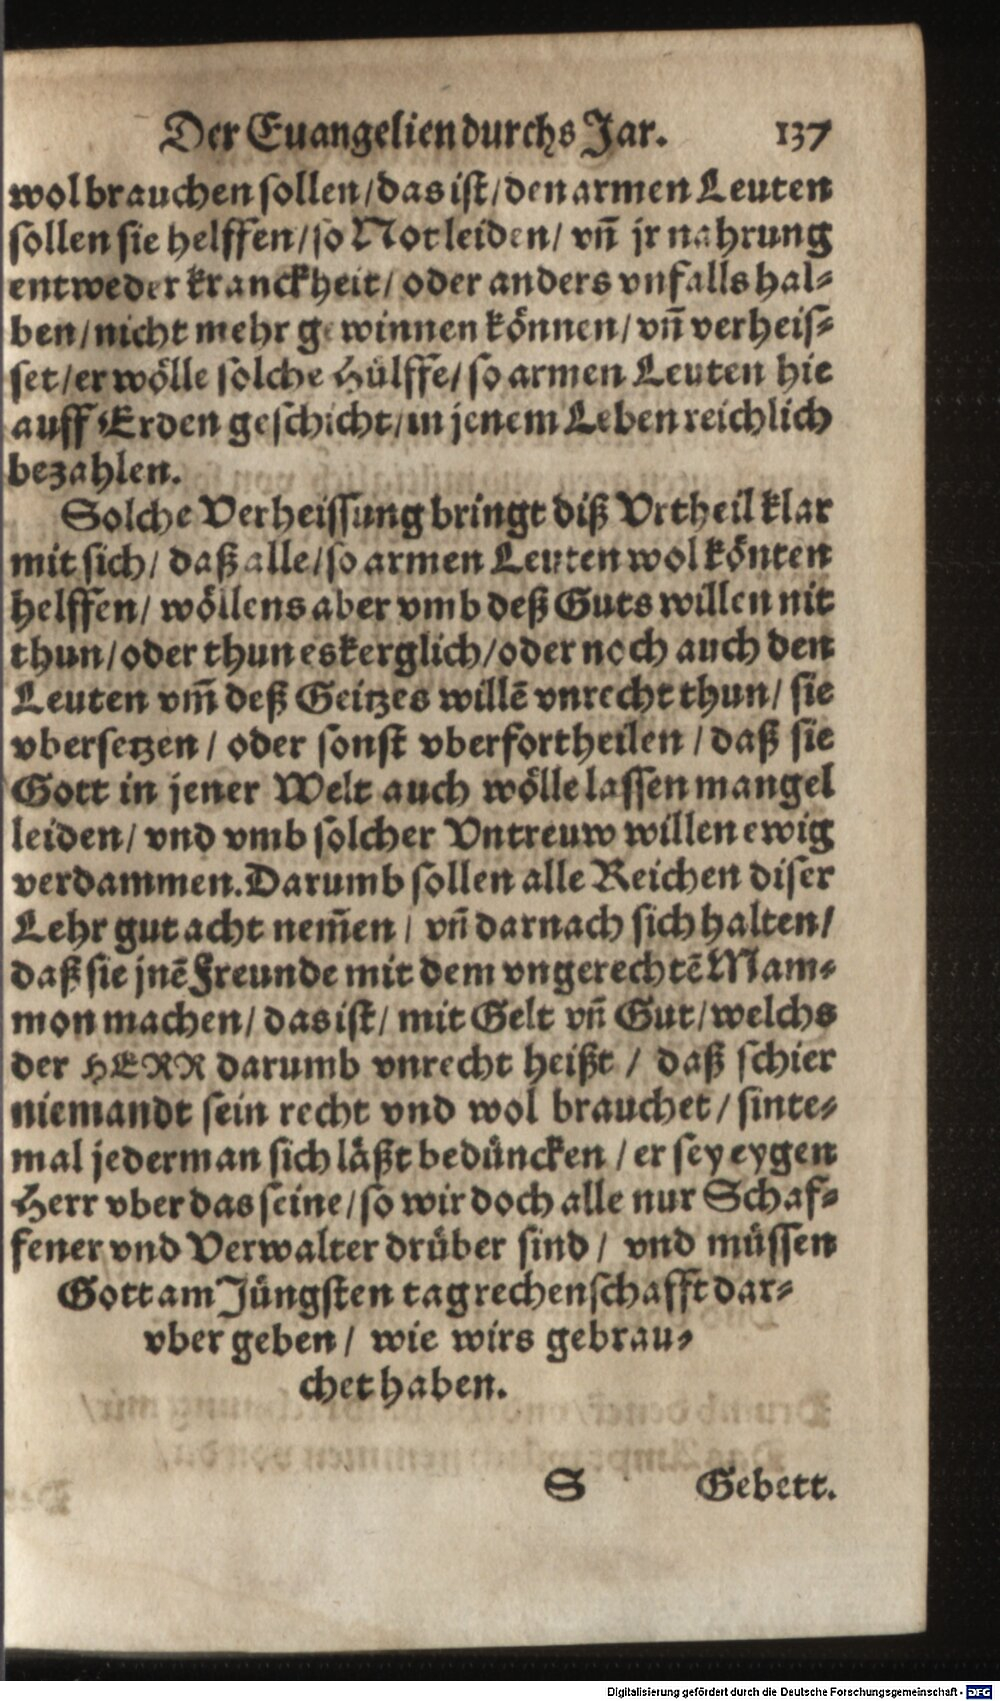 Der Euangelien durchs Jar. 137
wol brauchen sollen/das ist/den armen Leuten
sollen sie helffen/so Not leiden/ vñ jr nahrung
entweder kranckheit/ oder anders vnfalls hal⸗
ben/nicht mehr gewinnen können/ vñ verheis⸗
set/er wölle solche Hülffe/ so armen Leuten hie
auff Erden geschicht/in jenem Leben reichlich
bezahlen.
Solche Verheissung bringt diß Vrtheil klar
mit sich/ daß alle/so armen Leuten wol könten
helffen/ wöllens aber vmb deß Guts willen nit
thun/oder thun es kerglich/oder noch auch den
Leuten vm̃ deß Geitzes willẽ vnrecht thun/ sie
vbersetzen / oder sonst vberfortheilen / daß sie
Gott in jener Welt auch wölle lassen mangel
leiden/ vnd vmb solcher Vntreuw willen ewig
verdammen. Darumb sollen alle Reichen diser
Lehr gut acht nem̃en / vñ darnach sich halten/
daß sie jnẽ Freunde mit dem vngerechtẽ Mam⸗
mon machen/ das ist/ mit Gelt vñ Gut/welchs
der HERR darumb vnrecht heißt / daß schier
niemandt sein recht vnd wol brauchet/ sinte⸗
mal jederman sich läßt bedüncken / er sey eygen
Herr vber das seine/so wir doch alle nur Schaf⸗
fener vnd Verwalter drüber sind / vnd müssen
Gott am Jüngsten tag rechenschafft dar⸗
vber geben / wie wirs gebrau⸗
chet haben.
S Gebett.
Digitalisierung gefördert durch die Deutsche Forschungsgemeinschaft - DFG